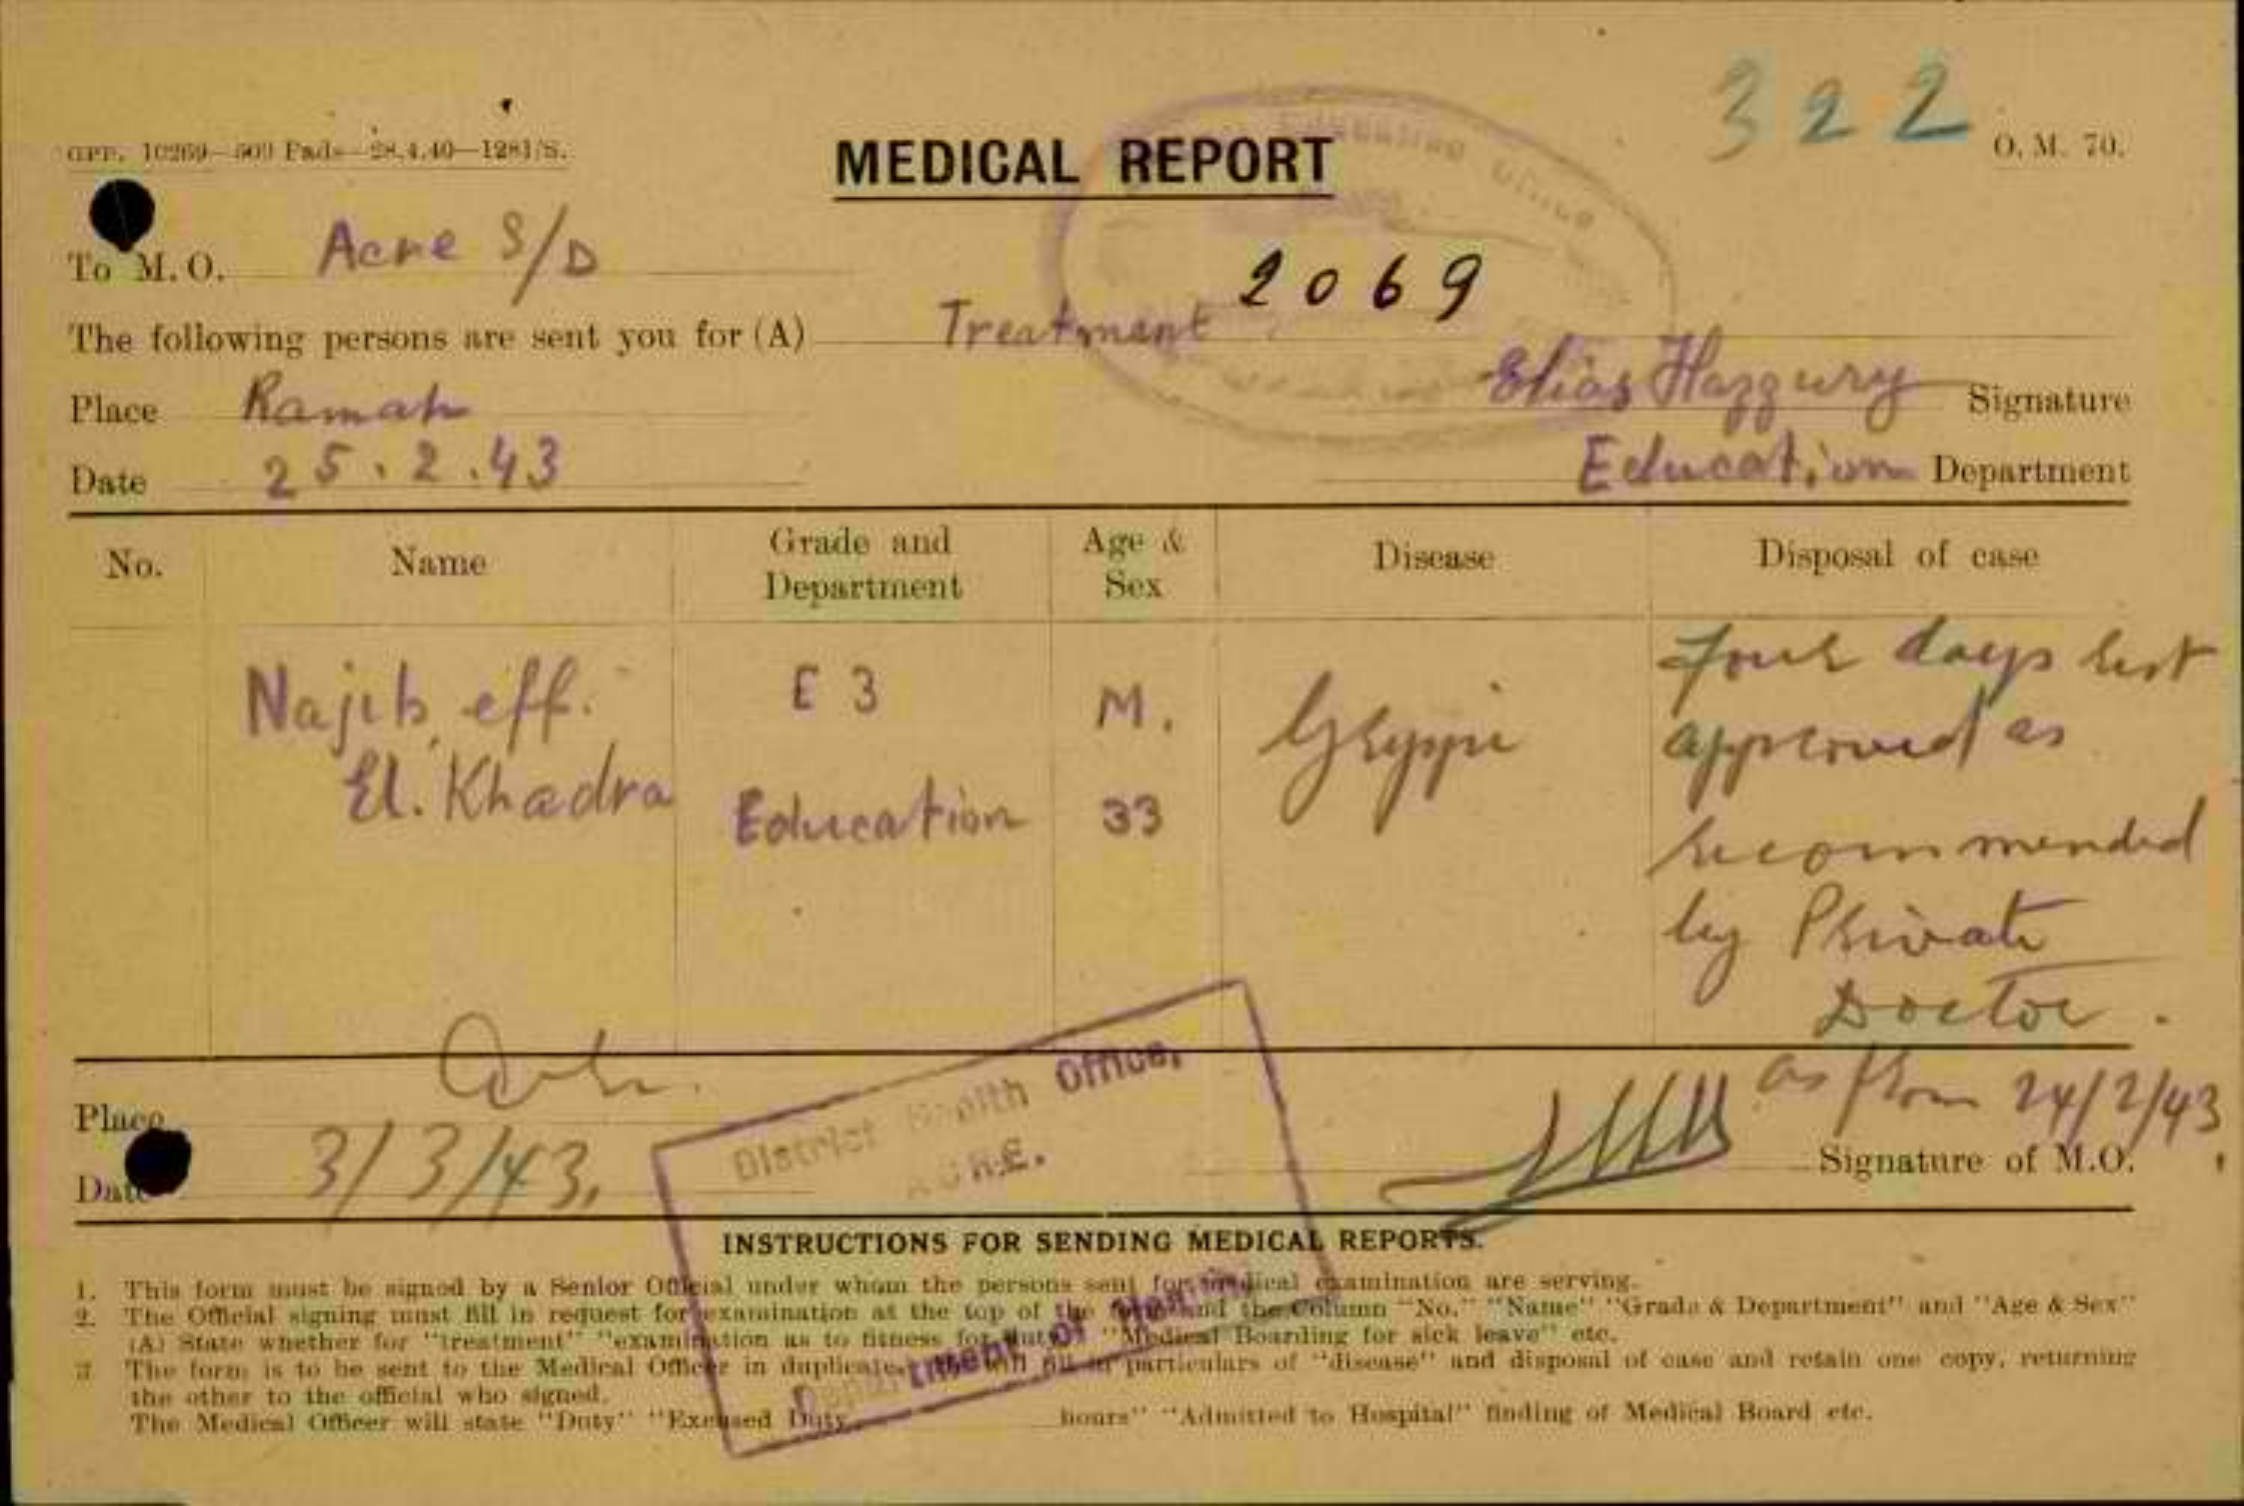 322
GPP. 10269—500 Pads—28.4.40—1281/S.
MEDICAL REPORT
O. M. 70.
Education Office
To M.O. Acre S/D
2069
The following persons are sent you for (A) Treatment
Place Ramah
Elias Hazzury Signature
Date 25.2.43
Education Department
No. Name Grade and Department Age & Sex Disease Disposal of case
Najib eff. El. Khadra
E 3 Education
M. 33
Grippe
four days rest
approved as
recommended
by Private
Doctor.
as from 24/2/43
Place
Date 3/3/43.
Signature of M.O.
District Health Office,
ACRE.
Department of Health
INSTRUCTIONS FOR SENDING MEDICAL REPORTS.
1. This form must be signed by a Senior Official under whom the persons sent for medical examination are serving.
2. The Official signing must fill in request for examination at the top of the form and the Column "No." "Name" "Grade & Department" and "Age & Sex"
(A) State whether for "treatment" "examination as to fitness for duty" "Medical Boarding for sick leave" etc.
3 The form is to be sent to the Medical Officer in duplicate, will fill in particulars of "disease" and disposal of case and retain one copy, returning
the other to the official who signed.
The Medical Officer will state "Duty" "Excused Duty hours" "Admitted to Hospital" finding of Medical Board etc.